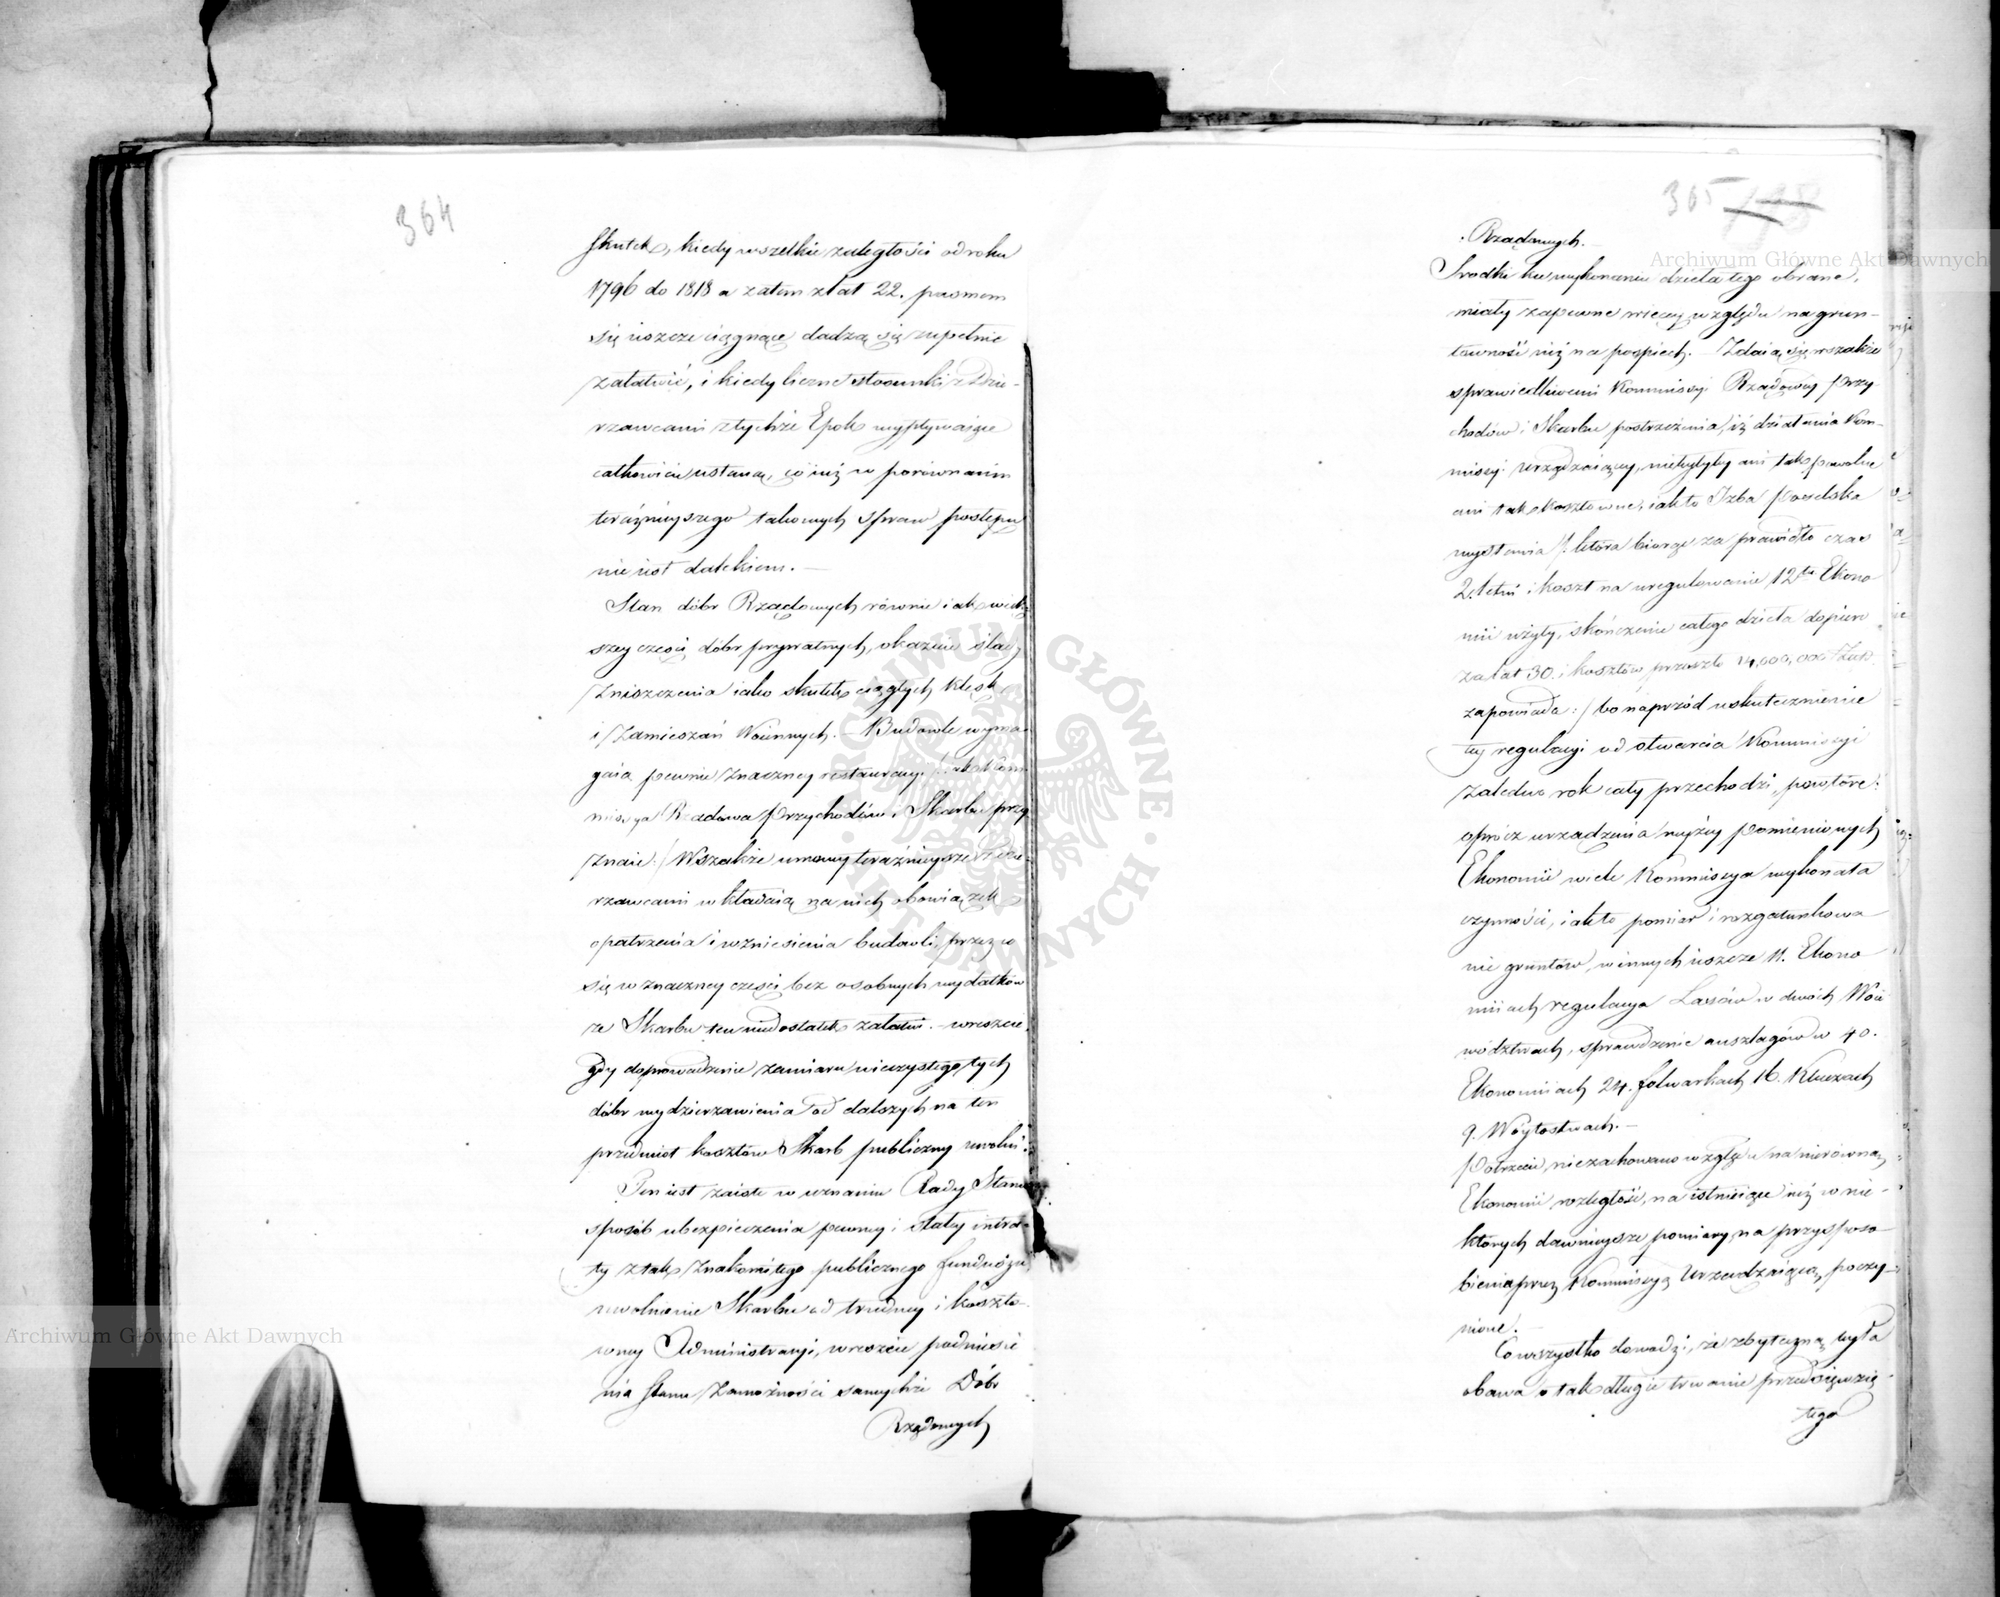 364
skutek, kiedy wszelkie zaległości od roku
1796 do 1818 a zatem z lat 22. pasmem
się ieszcze ciągnące dadzą się zupełnie
załatwić, i kiedy liczne stosunki z Dzier-
rzawcami z tychże Epok wypływaiące
całkowicie ustaną, co iuż w porównaniu
teraźnieyszego takowych spraw postępu
nie iest dalekiem. —
Stan dóbr Rządowych równie iak więk
szey części dóbr prywatnych, okazuie ślady
zniszczenia iako skutek ciągłych klęsk
i zamieszań Woiennych. — Budowle wyma
gaią pewnie znaczney restauracyi /: iak Kom
missya Rządowa Przychodów i Skarbu przy
znaie :/ Wszakże umowy teraźnieysze z Dzie-
rzawcami wkładaią na nich obowiązek
opatrzenia i wzniesienia budowli, przez co
się w znaczney części bez osobnych wydatków
ze Skarbu ten niedostatek załatwi. — wreszcie,
gdy doprowadzenie zamiaru wieczystego tych
dóbr wydzierzawienia od dalszych na ten
przedmiot kosztów Skarb publiczny uwolni.
Ten iest zaiste w uznaniu Rady Stanu
sposób ubezpieczenia pewney i stałey intra-
ty z tak znakomitego publicznego funduszu
uwolnienie Skarbu od trudney i koszto-
wney Administracyi, wreszcie podniesie
nia stanu zamożności samychże Dóbr
Rządowych
365
Rządowych. —
Srodki ku wykonaniu dzieła tego obrane,
miały zapewne więcey względu na grun-
towność niż na pospiech. — Zdaią się wszakże
sprawiedliwemi Kommissyi Rządowey Przy
chodów i Skarbu postrzeżenia, iż działania Kom-
missyi Urządzaiącey, niebyłyby ani tak powolne
ani tak kosztowne, iak to Izba Poselska
wystawia /: która biorąc za prawidło czas
2. letni i koszt na uregulowanie 12tu Ekono
mii użyty, skończenie całego dzieła dopiero
za lat 30. i kosztów przeszło 14,000,000
zapowiada :/ bo naprzód uskutecznienie
tey regulacyi od otwarcia Kommissyi
zaledwo rok cały przechodzi, powtóre:
oprócz urządzenia wyżey pomienionych
Ekonomii wiele Kommissya wykonała
czynności, iak to pomiar i rozgatunkowa
nie gruntów, w innych ieszcze 11. Ekono
miiach regulacya Lassów w dwóch Woie
wództwach, sprawdzenie anszlagów w 40.
Ekonomiiach 24. folwarkach 16. Kluczach
9. Wóytostwach. —
Potrzecie niezachowano względu na nierówną
Ekonomii rozległość, na istnieiące iuż w nie-
których dawnieysze pomiary, na przysposo
bienia przez Kommissyą Urządzaiącą poczy-
nione. —
Co wszystko dowodzi, że zbyteczną była
obawa o tak długie trwanie przedsięwzię-
tego
Archiwum Główne Akt Dawnych
ARCHIWUM GŁÓWNE AKT DAWNYCH
Archiwum Główne Akt Dawnych